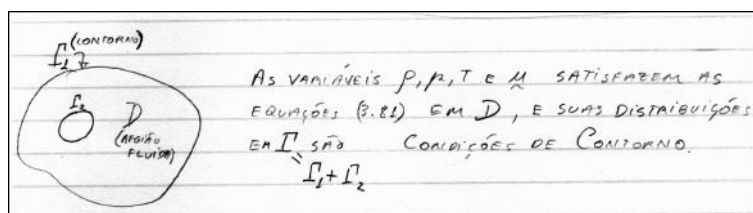 Γ₁ (CONTORNO)
Γ₂
D
(REGIÃO
FLUIDA)
AS VARIÁVEIS ρ, p, T E ṵ SATISFAZEM AS
EQUAÇÕES (3.81) EM D, E SUAS DISTRIBUIÇÕES
EM Γ SÃO CONDIÇÕES DE CONTORNO.
Γ₁+Γ₂